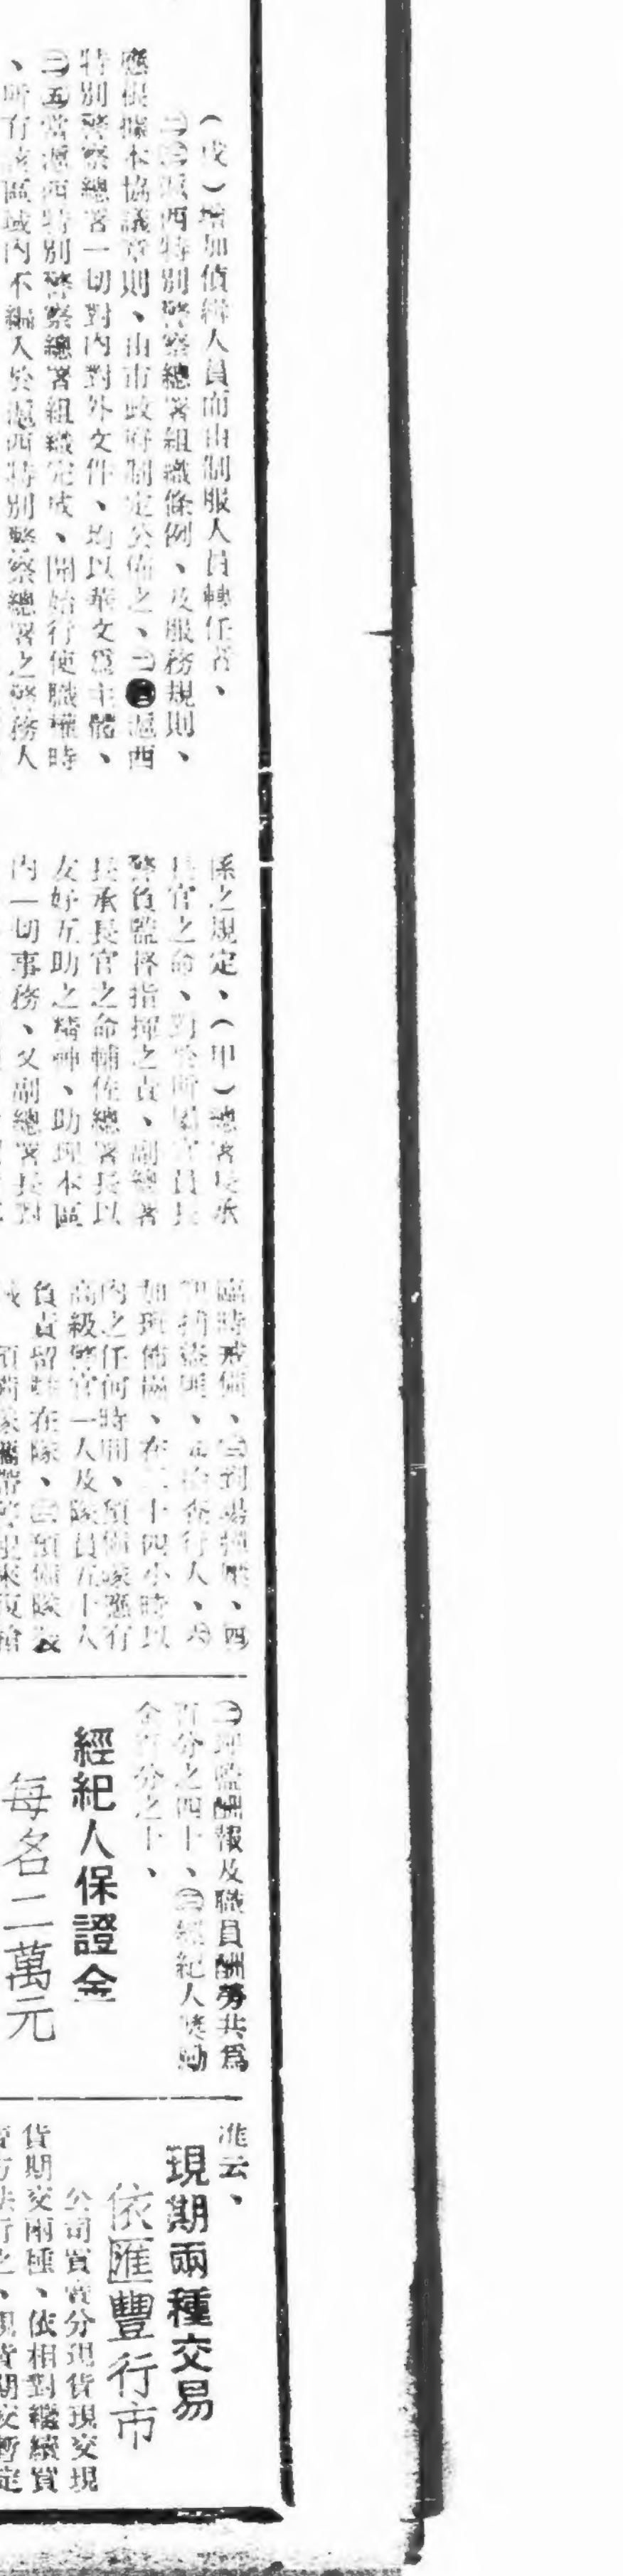 （戊）增加偵緝人員而由制服人員轉任者、
㊂滬西特別警察總署組織條例、及服務規則、
應根據本協議章則、由市政府制定公佈之、滬西
特別警察總署一切對內對外文件、均以華文爲主體、
㊄當滬西特別警察總署組織完成、開始行使職權時
、所有該區域內不編入於滬西特別警察總署之警務人
係之規定、（甲）總署長承
長官之命、對於所屬官員長
警負監督指揮之責、副總署
長承長官之命輔佐總署長以
友好互助之精神、助理本區
內一切事務、又副總署長對
臨時戒備、㊂到場彈壓、四
加班佈崗、在二十四小時以
內之任何時間、預備隊應有
高級警官一人及隊員五十人
負責留駐在隊、㊂預備隊
㊁理監酬報及職員酬勞共爲
百分之四十、㊂經紀人獎勵
金百分之十、
經紀人保證金
每名二萬元
准云、
現期兩種交易
依匯豐行市
公司買賣分現貨現交現
貨期交兩種、依相對繼續買
賣方法行之、現貨期交暫定